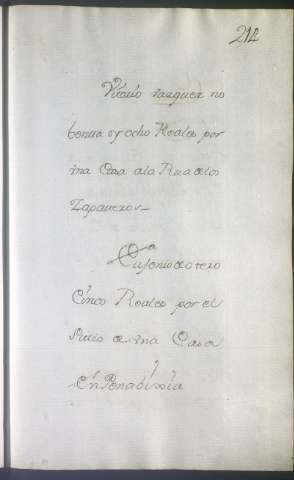 214
Vitorio vazquez no
benta y ocho Reales por
vna Casa ala Rua de los
Zapateros
Eufenio de otero
Cinco Reales por el
Sitio de vna Casa
En Penabixia